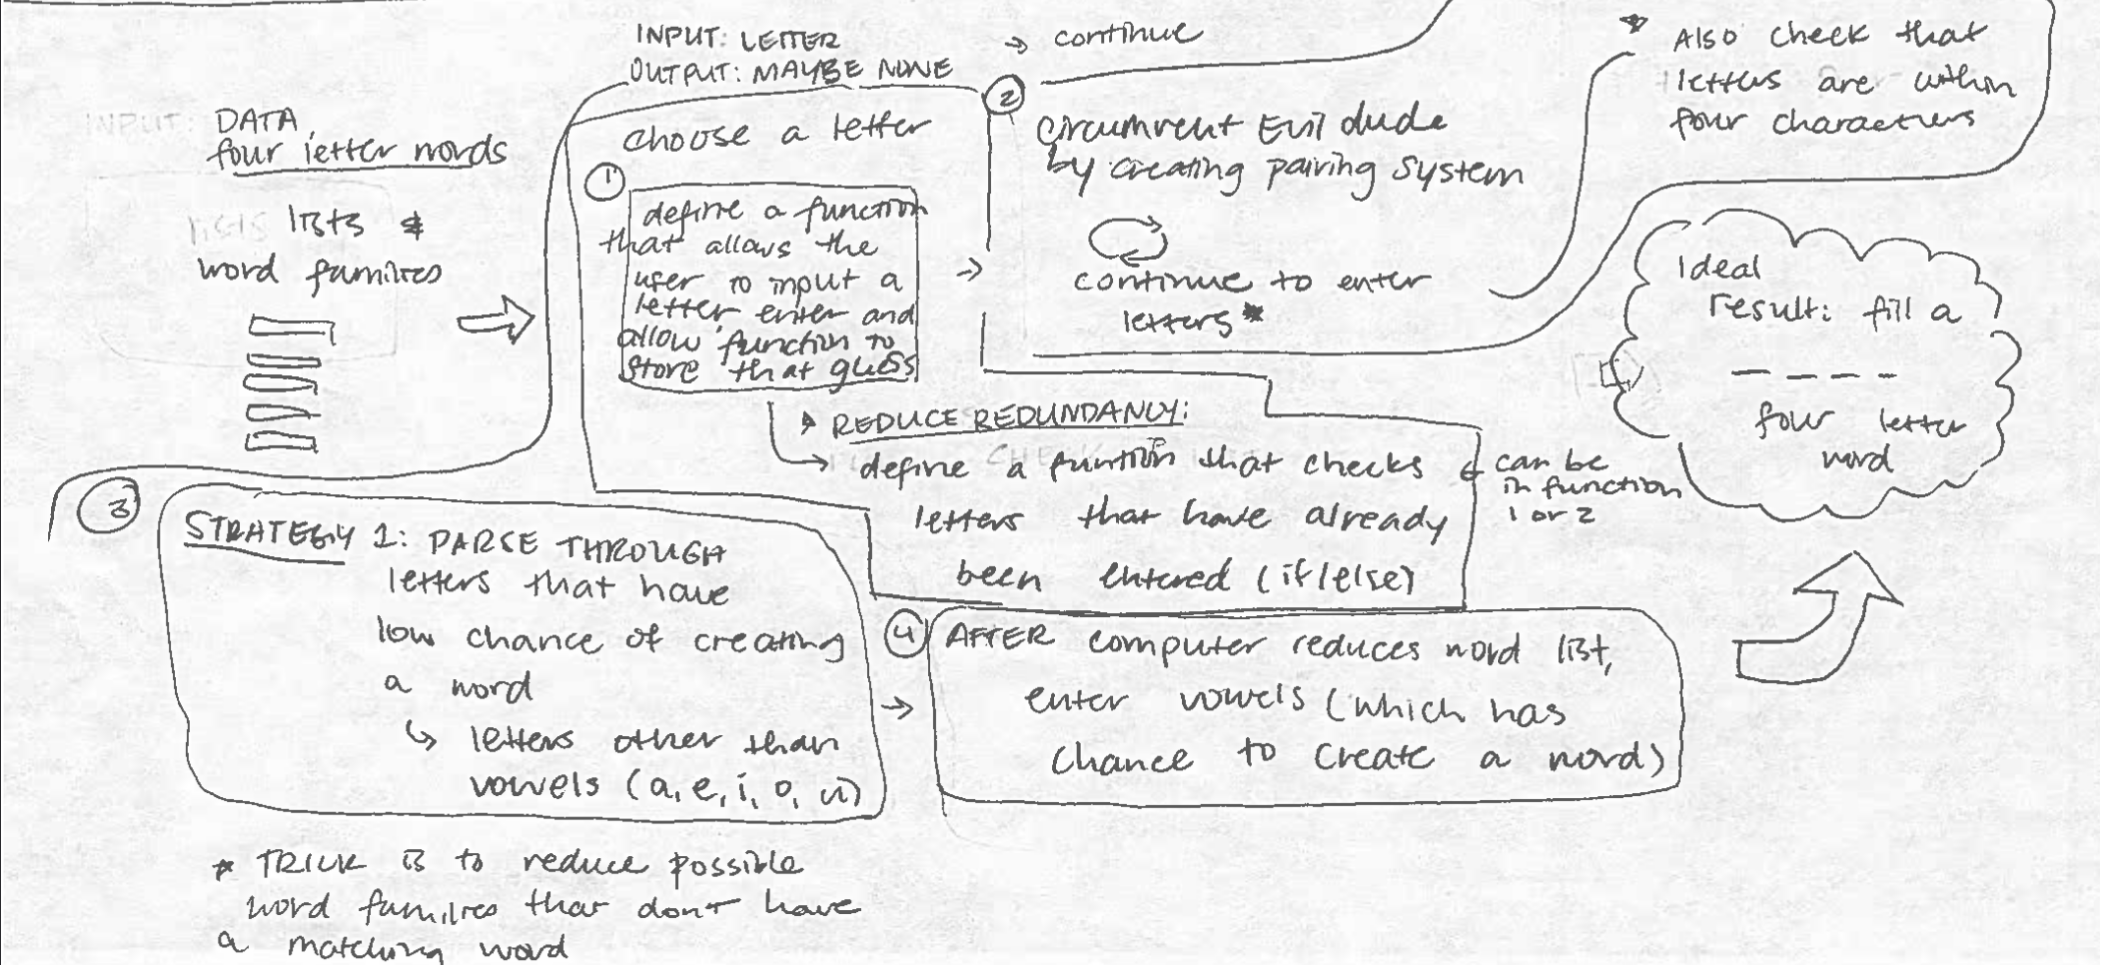 DATA
four letter words
lists &
word families
INPUT: LETTER
OUTPUT: MAYBE NONE
choose a letter
1
define a function
that allows the
user to input a
letter, enter and
allow function to
store that guess
REDUCE REDUNDANCY:
define a funtion that checks
letters that have already
been entered (if/else)
can be
in function
1 or 2
→ continue
2
circumvent Evil dude
by creating pairing system
continue to enter
letters*
* Also check that
letters are within
four characters
3
STRATEGY 1: PARSE THROUGH
letters that have
low chance of creating
a word
letters other than
vowels (a, e, i, o, u)
* TRICK is to reduce possible
word families that don't have
a matching word
4
AFTER computer reduces word list,
enter vowels (which has
chance to create a word)
Ideal
result: fill a
_ _ _ _
four letter
word